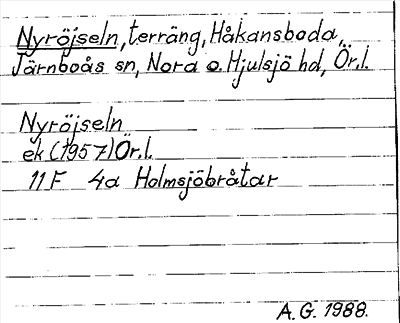 Nyröjseln, terräng, Håkansboda,
Järnboås sn, Nora o. Hjulsjö hd, Ör.l.
Nyröjseln
ek (1957) Ör.l.
11 F 4a Holmsjöbråtar
A.G. 1988.